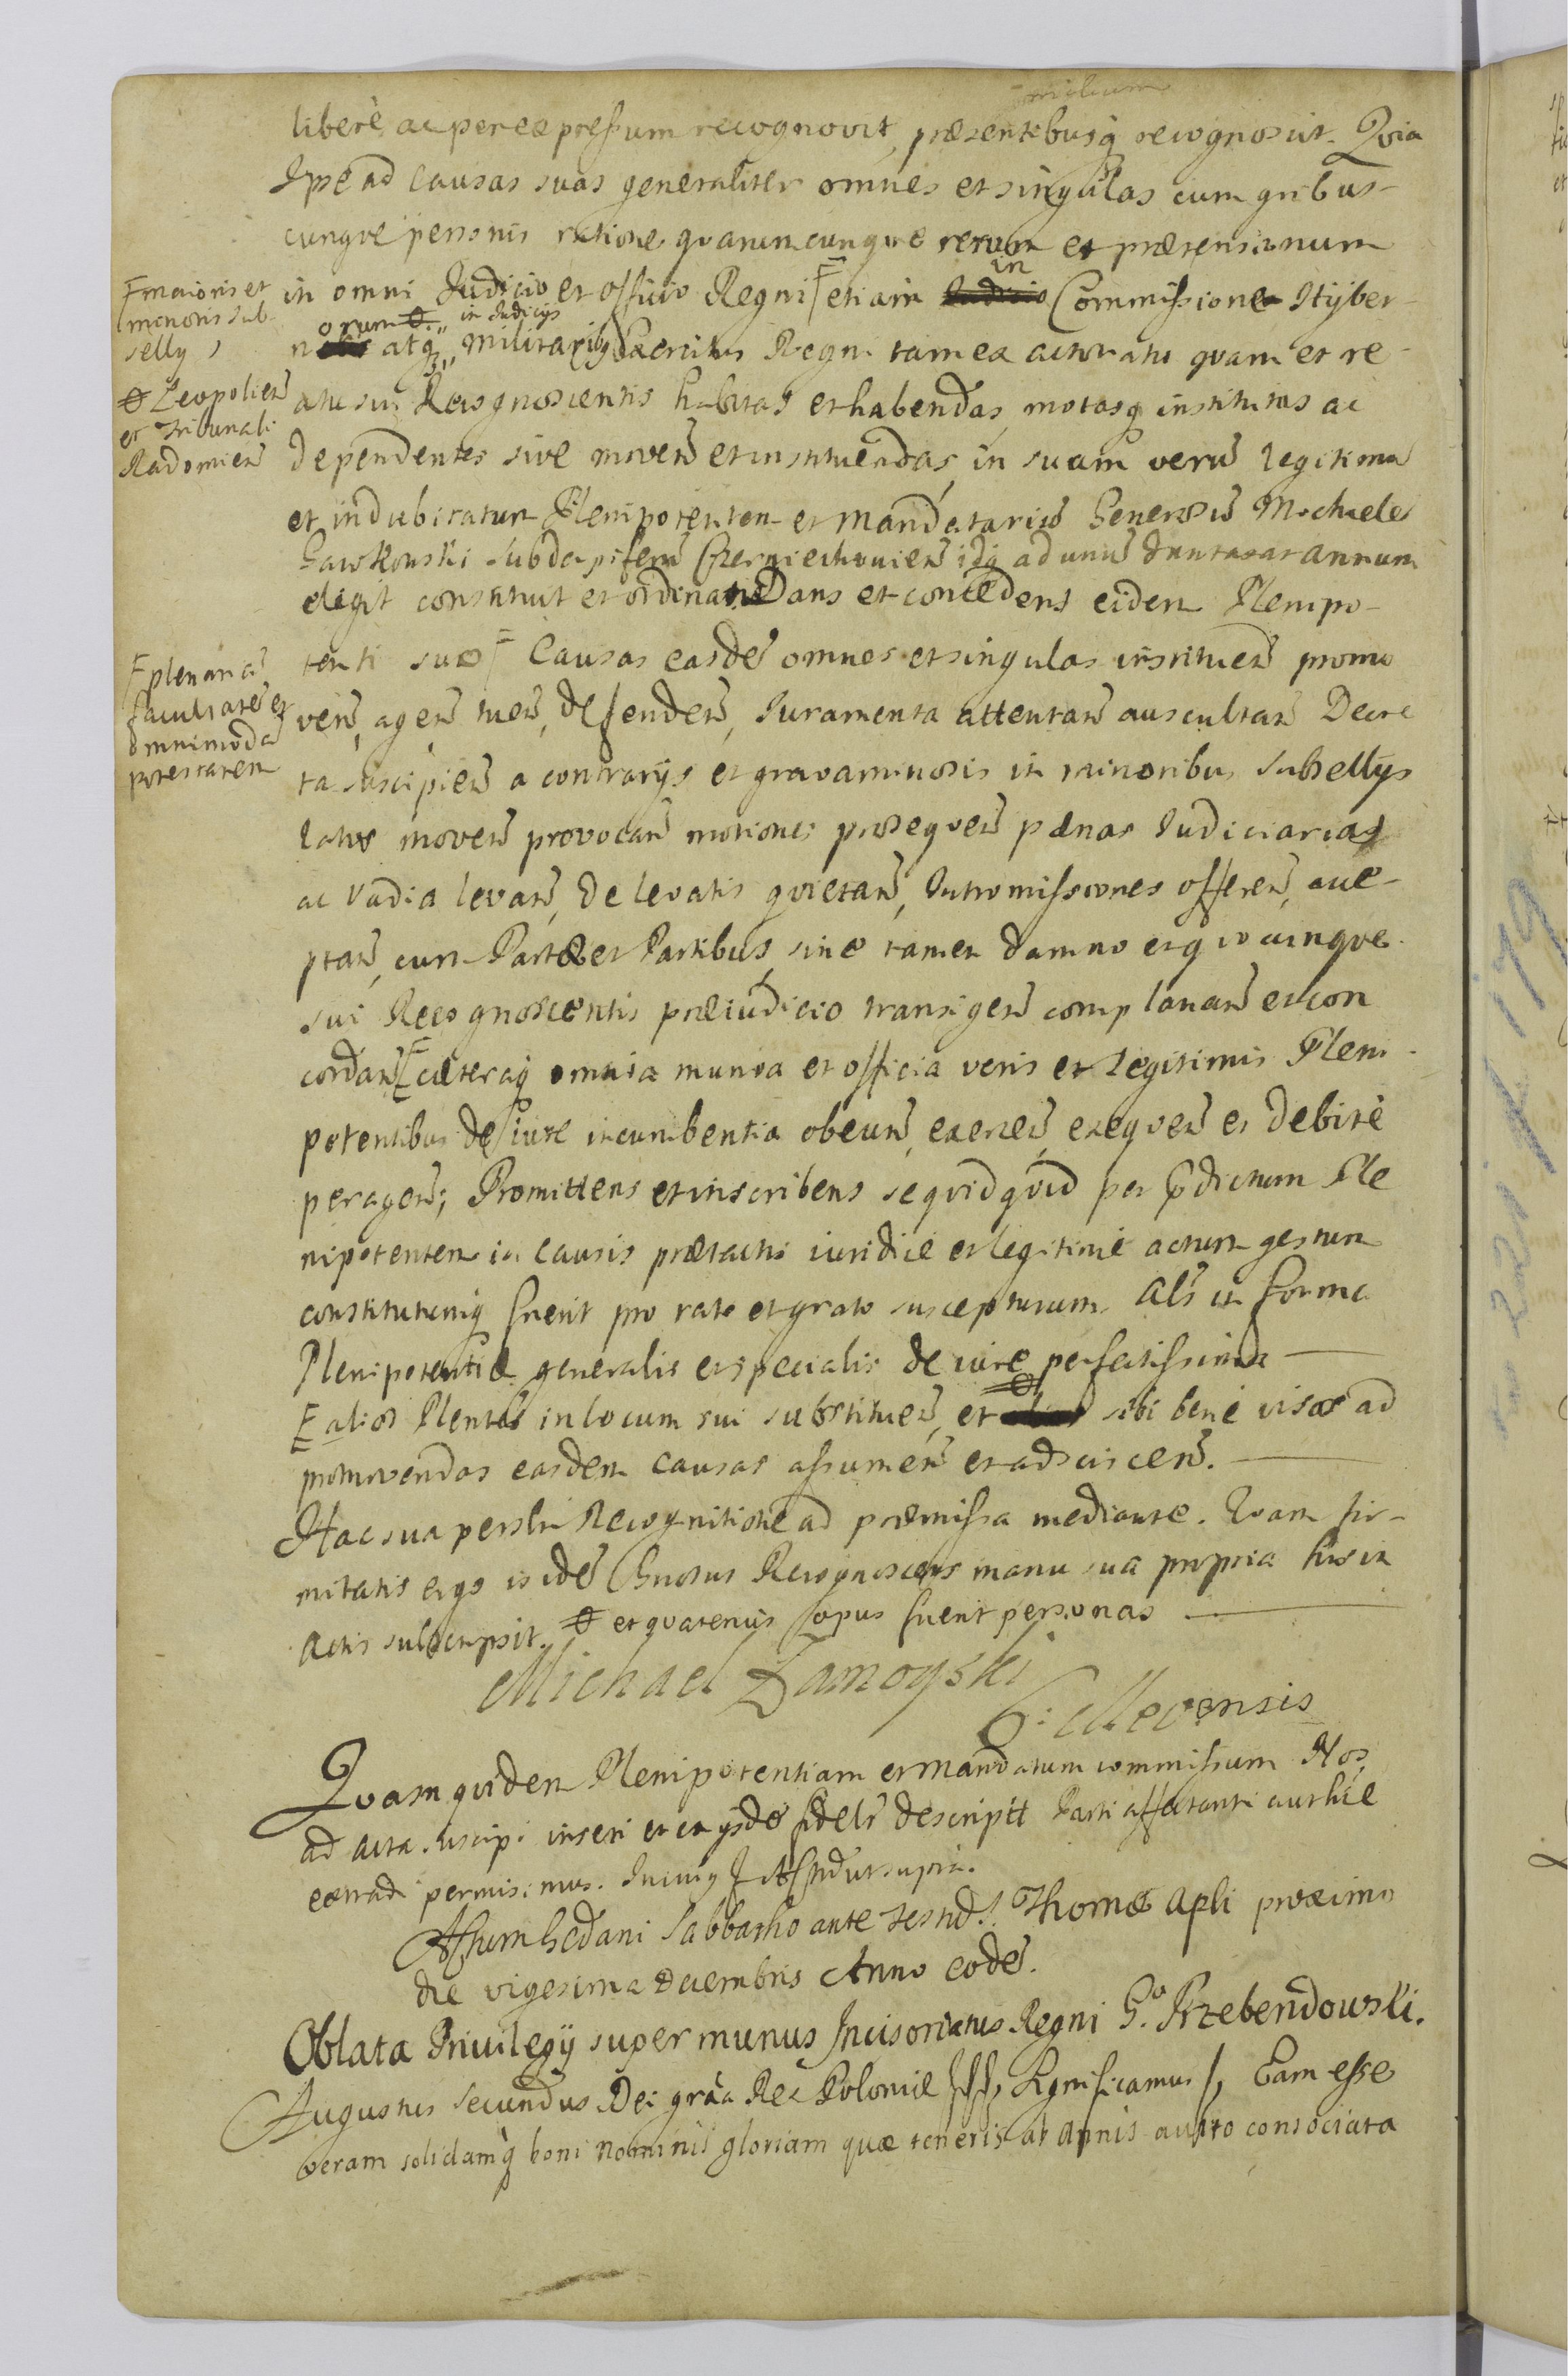 libere, ac per expressum recognovit, præsentibusq recognoscit. Quia
Ipse ad Causas suas generaliter omnes et singulas cum quibus-
cunque personis ratione quarumcunque rerum et prætensionum
in omni Judicio et officio Regni etiam in Commissione Hyber-
n orum atq in Judicijs militaribq Exercitus Regni tam ex actoratu quam et re-
atu sui Recognoscentis habitas et habendas, motasq institutas ac
dependentes sive movend et instituendas, in suam veru legitima
et indubitatum Plenipotenten et Mandatariu Generosu Michaele
Gawkowski Subdapiferu Czerniechovien idq ad unu duntaxat annum
elegit constituit et ordinavit Dans et concedens eidem Plenipo-
tenti suo Causas easde omnes et singulas instituen promo
ven, agen tuen, defenden, Juramenta attentan auscultan Decre
ta suscipien a contrarijs et gravaminosis in minoribus Subsellijs
latis moven provocan motiones prosequen pænas Judiciarias
ac Vadia levan, de levatis quietan, Intromissiones offeren, acce-
ptan, cum Parte et Partibus, sine tamen damno et quocunque
sui Recognoscentis præiudicio transigen complanan et con
cordan cæteraq omnia munia et officia veris et legitimis Pleni-
potentibus de iure incumbentia obeun, exercen, exequen et debite
peragen; Promittens et inscribens se quidquid per prdictum Ple
nipotentem in causis prætactis iuridice et legitime actum gestum
constitutumq fuerit pro rato et grato suscepturum. Als in forma
Plenipotentiæ generalis et specialis de iure perfectissima
alios Plentes in locum sui substituen, et sibi bene visos ad
promovendas easdem causas assumen et adsciscen.
Hac sua persli Recognitione ad præmissa mediante. Quam fir-
mitatis ergo is ide Gnosus Recognoscens manu sua propria hisce
Actis subscripsit. et quatenus opus fuerit personas
Michael Zamoyski
C: Mevensis
Quam quidem Plenipotentiam et Mandatum commissum Nos,
ad acta suscipi inseri et ex ijsde fidelr descriptt Parti affectanti authce
extradi permisimus. In cuiq Actu ut supra.
Actum Gedani Sabbatho ante Festu S. Thomæ Apli proximo
die vigesima Decembris Anno eode.
Oblata Privilegij super munus Incisoriatus Regni G. Przebendowski.
Augustus Secundus Dei gra Rex Poloniæ Significamus, Eam esse
veram solidamq boni nominis gloriam quæ teneris ab annis consociata
maioris et
minoris Sub
sellij
Leopolien
et Tribunali
Radomien
plenaria
facultate et
omnimoda
potestatem